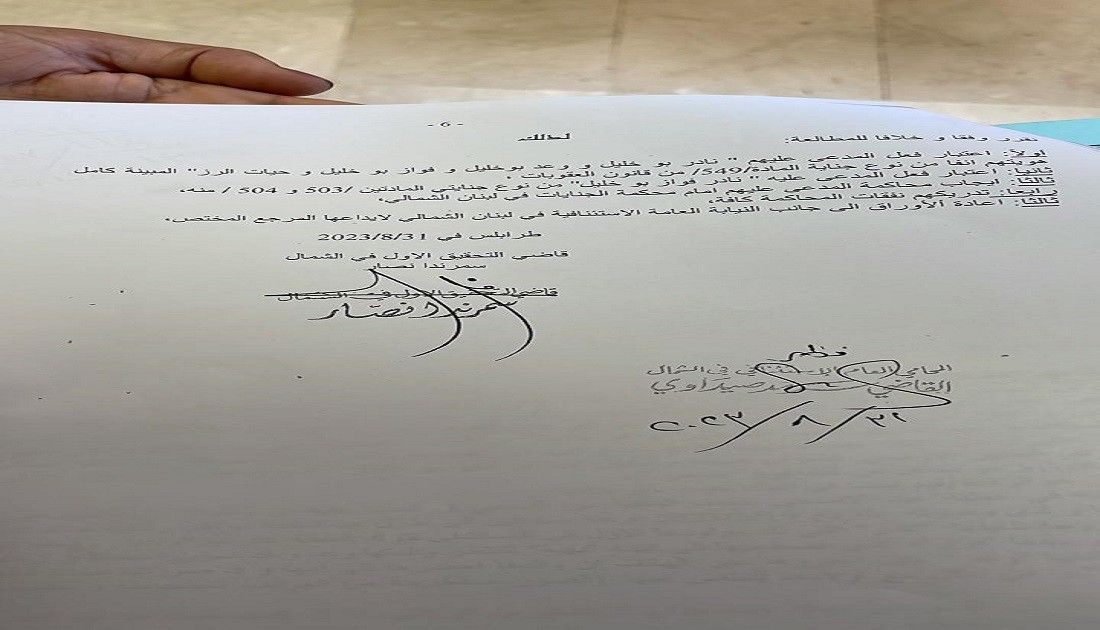 - 6 -
لذلك
نقرر وفقا و خلافا للمطالعة:
اولاً: اعتبار فعل المدعى عليهم " نادر بو خليل و وعد بو خليل و فواز بو خليل و حيات الرز" المبينة كامل
هويتهم انفا من نوع جناية المادة/549/ من قانون العقوبات.
ثانيا: اعتبار فعل المدعى عليه " نادر فواز بو خليل" من نوع جنايتي المادتين /503 و 504 / منه.
ثالثا: ايجاب محاكمة المدعى عليهم امام محكمة الجنايات في لبنان الشمالي.
رابعا: تدريكهم نفقات المحاكمة كافة.
ثالثا: اعادة الأوراق الى جانب النيابة العامة الاستئنافية في لبنان الشمالي لايداعها المرجع المختص.
طرابلس في 2023/8/31
قاضي التحقيق الاول في الشمال
سمرندا نصار
قاضي التحقيق الاول في الشمال
سمرندا نصار
المحامي العام الاستئنافي في الشمال
القاضي صيداوي